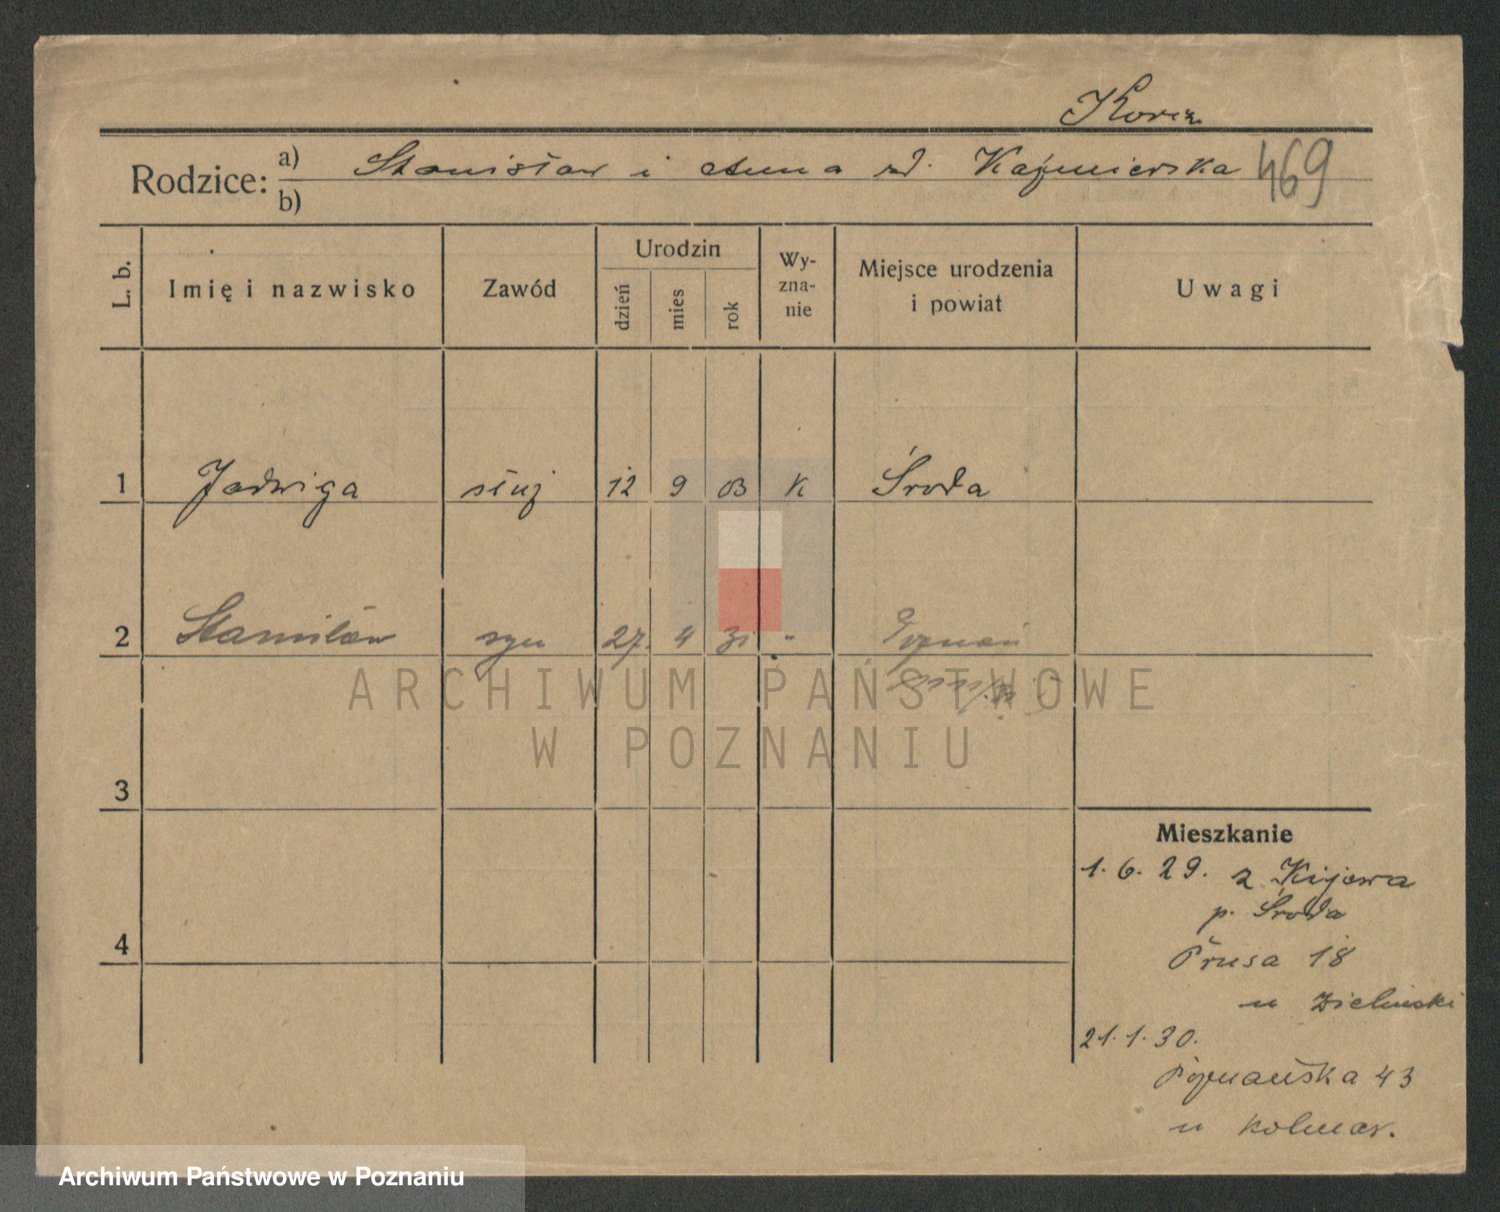 Korcz
Rodzice: a) Stanisław i Anna zd. Kaźmierska 469
b)
L. b. Imię i nazwisko Zawód Urodzin dzień mies rok Wyznanie Miejsce urodzenia i powiat Uwagi
1 Jadwiga służ 12 9 03 K Środa
2 Stanisław syn 27. 4 31 " Poznań
ARCHIWUM PAŃSTWOWE
W POZNANIU
3
Mieszkanie
1. 6. 29. z Kijewa
p. Środa
4
Prusa 18
u Zieliński
21. 1. 30.
Poznańska 43
u Kolmar.
Archiwum Państwowe w Poznaniu